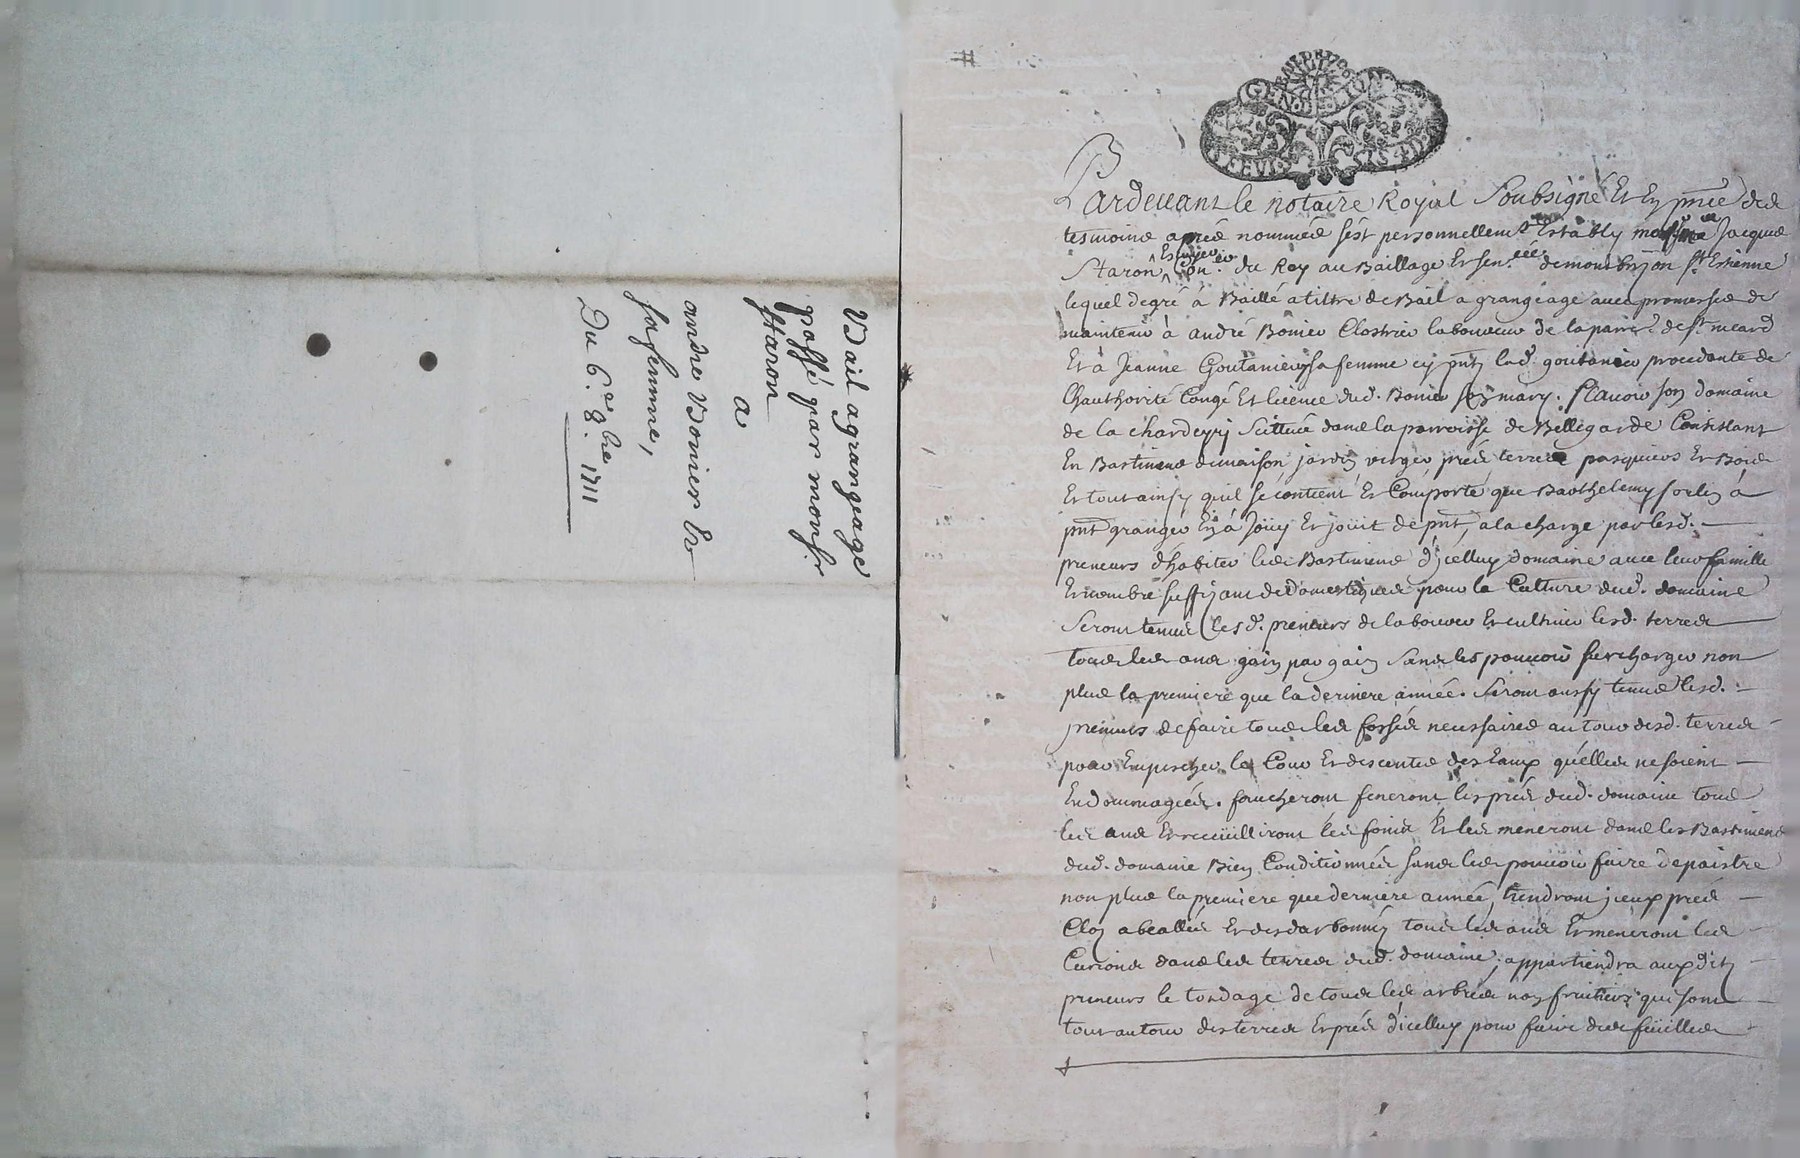 Bail agrangeage
passé par monsr
Staron
a
andre Bonier Et
sa femme,
Du 6.e 8.bre 1711
GEN
Pardevant le notaire Royal Soubsigné Et En pnce des
tesmoins aprés nommés s'est personnellemt Estably Jacques
Staron Escuyer Con.er du Roy au Baillage Et Sen.ée de montbrison St Estienne
lequel de gré à Baillé a tiltre de Bail a grangéage avec promesse de
maintenir à andré Bonier Clostrier laboureur de la parr.e de St meard
Et à Jeanne Goutanier sa femme cy pnts lad. goutanier procedante de
l'hauthorité Congé Et licence dud. Bonier son mary. Sçavoir son domaine
de la chardeyri Scittué dans la parroisse de Bellegarde Consistant
En Bastimens de maison jardin verger, préés terres pasquiers Et Bois
Et tout ainsy qu'il se contient Et Comporte que Barthelemy forlin à
pnt granger En à Jouy Et jouit de pnt, a la charge par lesd.
preneurs d'habiter les Bastimens d'icelluy domaine avec leur famille
Et nombre suffisant de domestiques pour la Culture dud. domaine
Seront tenus lesd. preneurs de labourer Et cultiver lesd. terres
tous les ans gain par gain Sans les pouvoir surcharger non
plus la premiere que la derniere année. Seront aussy tenus lesd.
preneurs de faire tous les fossés necessaires au tour desd. terres
pour Empescher le Cour Et descente des Eaux qu'elles ne soient
Endommagées. faucheront feneront les prés dud. domaine tous
les ans Et recuilliront les foins Et les meneront dans les Bastimens
dud. domaine Bien Conditionnés sans les pouvoir faire depaistre
non plus la premiere que derniere année, tiendront jceux prés
Clos abeallés Et desdarbonnés tous les ans Et meneront les
Curions dans les terres dud. domaine, appartiendra aux dits
preneurs le tondage de tous les arbres non fruitiers qui sont
tout autour des terres Et prés d'icelluy pour faire des feüilles